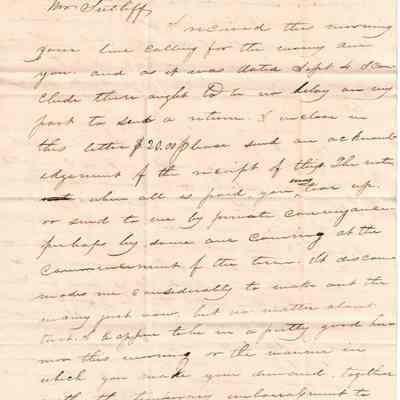 Mr Sutliff,
I received this morning
your line calling for the money due
you. and as it was dated Sept 4 I con
clude there ought to be no delay on my
part to send a return. I inclose in
this letter $20.00 please send an acknowl
edgement of the receipt of this. The note
when all is paid, you may tear up.
or send to me by private conveyance
perhaps by some one coming at the
commencement of the term. It discom
modes me considerably to make out the
money just now, but no matter about
that. I happen to be in a pretty good hu
mor this morning or the manner in
which you made your demand, together
with the pecuniary embarrassment to